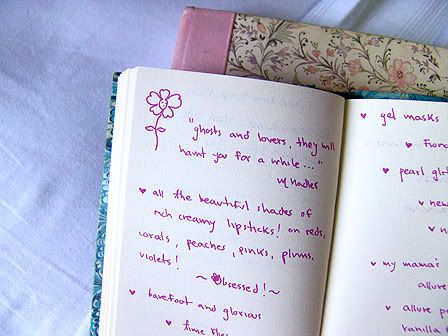 "ghosts and lovers, they will
haunt you for a while..."
♥ all the beautiful shades of
rich creamy lipsticks! on reds,
corals, peaches, pinks, plums,
violets!
~ Obsessed! ~
♥ barefoot and glorious
♥ time flies
♥ gel masks
♥ pearl
♥ my mama'
allure
♥ allure
vanilla